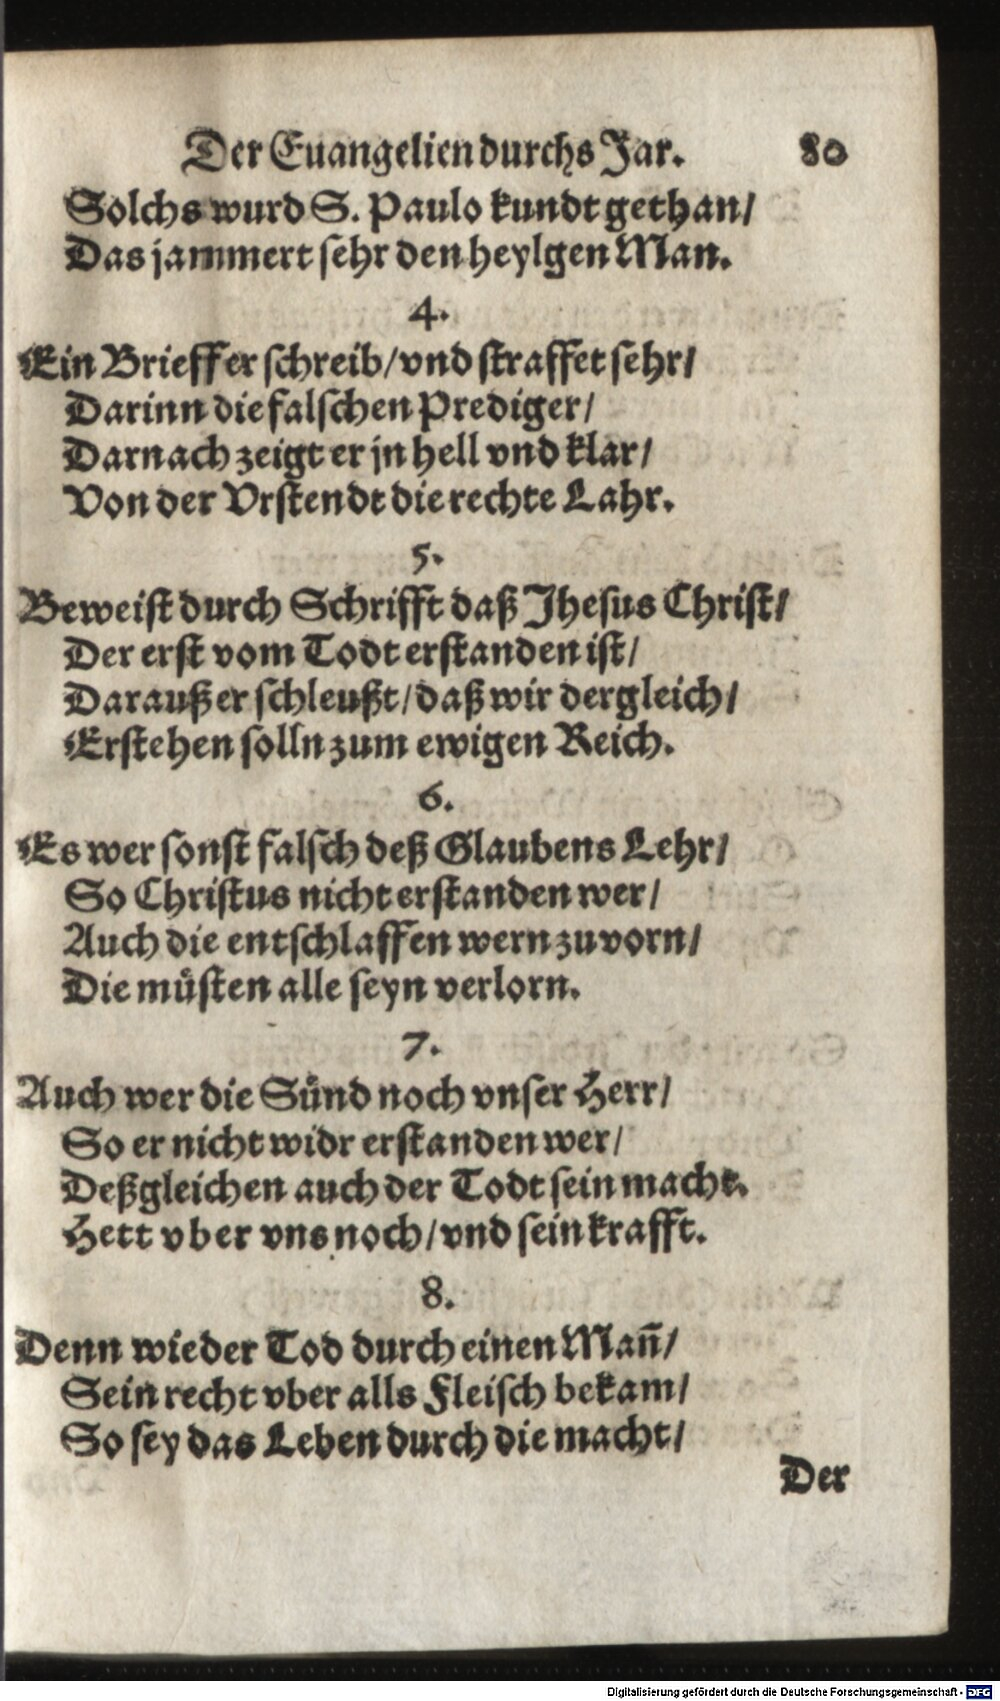 Der Euangelien durchs Jar. 80
Solchs wurd S. Paulo kundt gethan/
Das jammert sehr den heylgen Man.
4.
Ein Brieff er schreib/ vnd straffet sehr/
Darinn die falschen Prediger/
Darnach zeigt er jn hell vnd klar/
Von der Vrstendt die rechte Lahr.
5.
Beweist durch Schrifft daß Jhesus Christ/
Der erst vom Todt erstanden ist/
Darauß er schleußt/ daß wir dergleich/
Erstehen solln zum ewigen Reich.
6.
Es wer sonst falsch deß Glaubens Lehr/
So Christus nicht erstanden wer/
Auch die entschlaffen wern zuvorn/
Die müsten alle seyn verlorn.
7.
Auch wer die Sünd noch vnser Herr/
So er nicht widr erstanden wer/
Deßgleichen auch der Todt sein macht.
Hett vber vns noch/ vnd sein krafft.
8.
Denn wie der Tod durch einen Mañ/
Sein recht vber alls Fleisch bekam/
So sey das Leben durch die macht/
Der
Digitalisierung gefördert durch die Deutsche Forschungsgemeinschaft - DFG